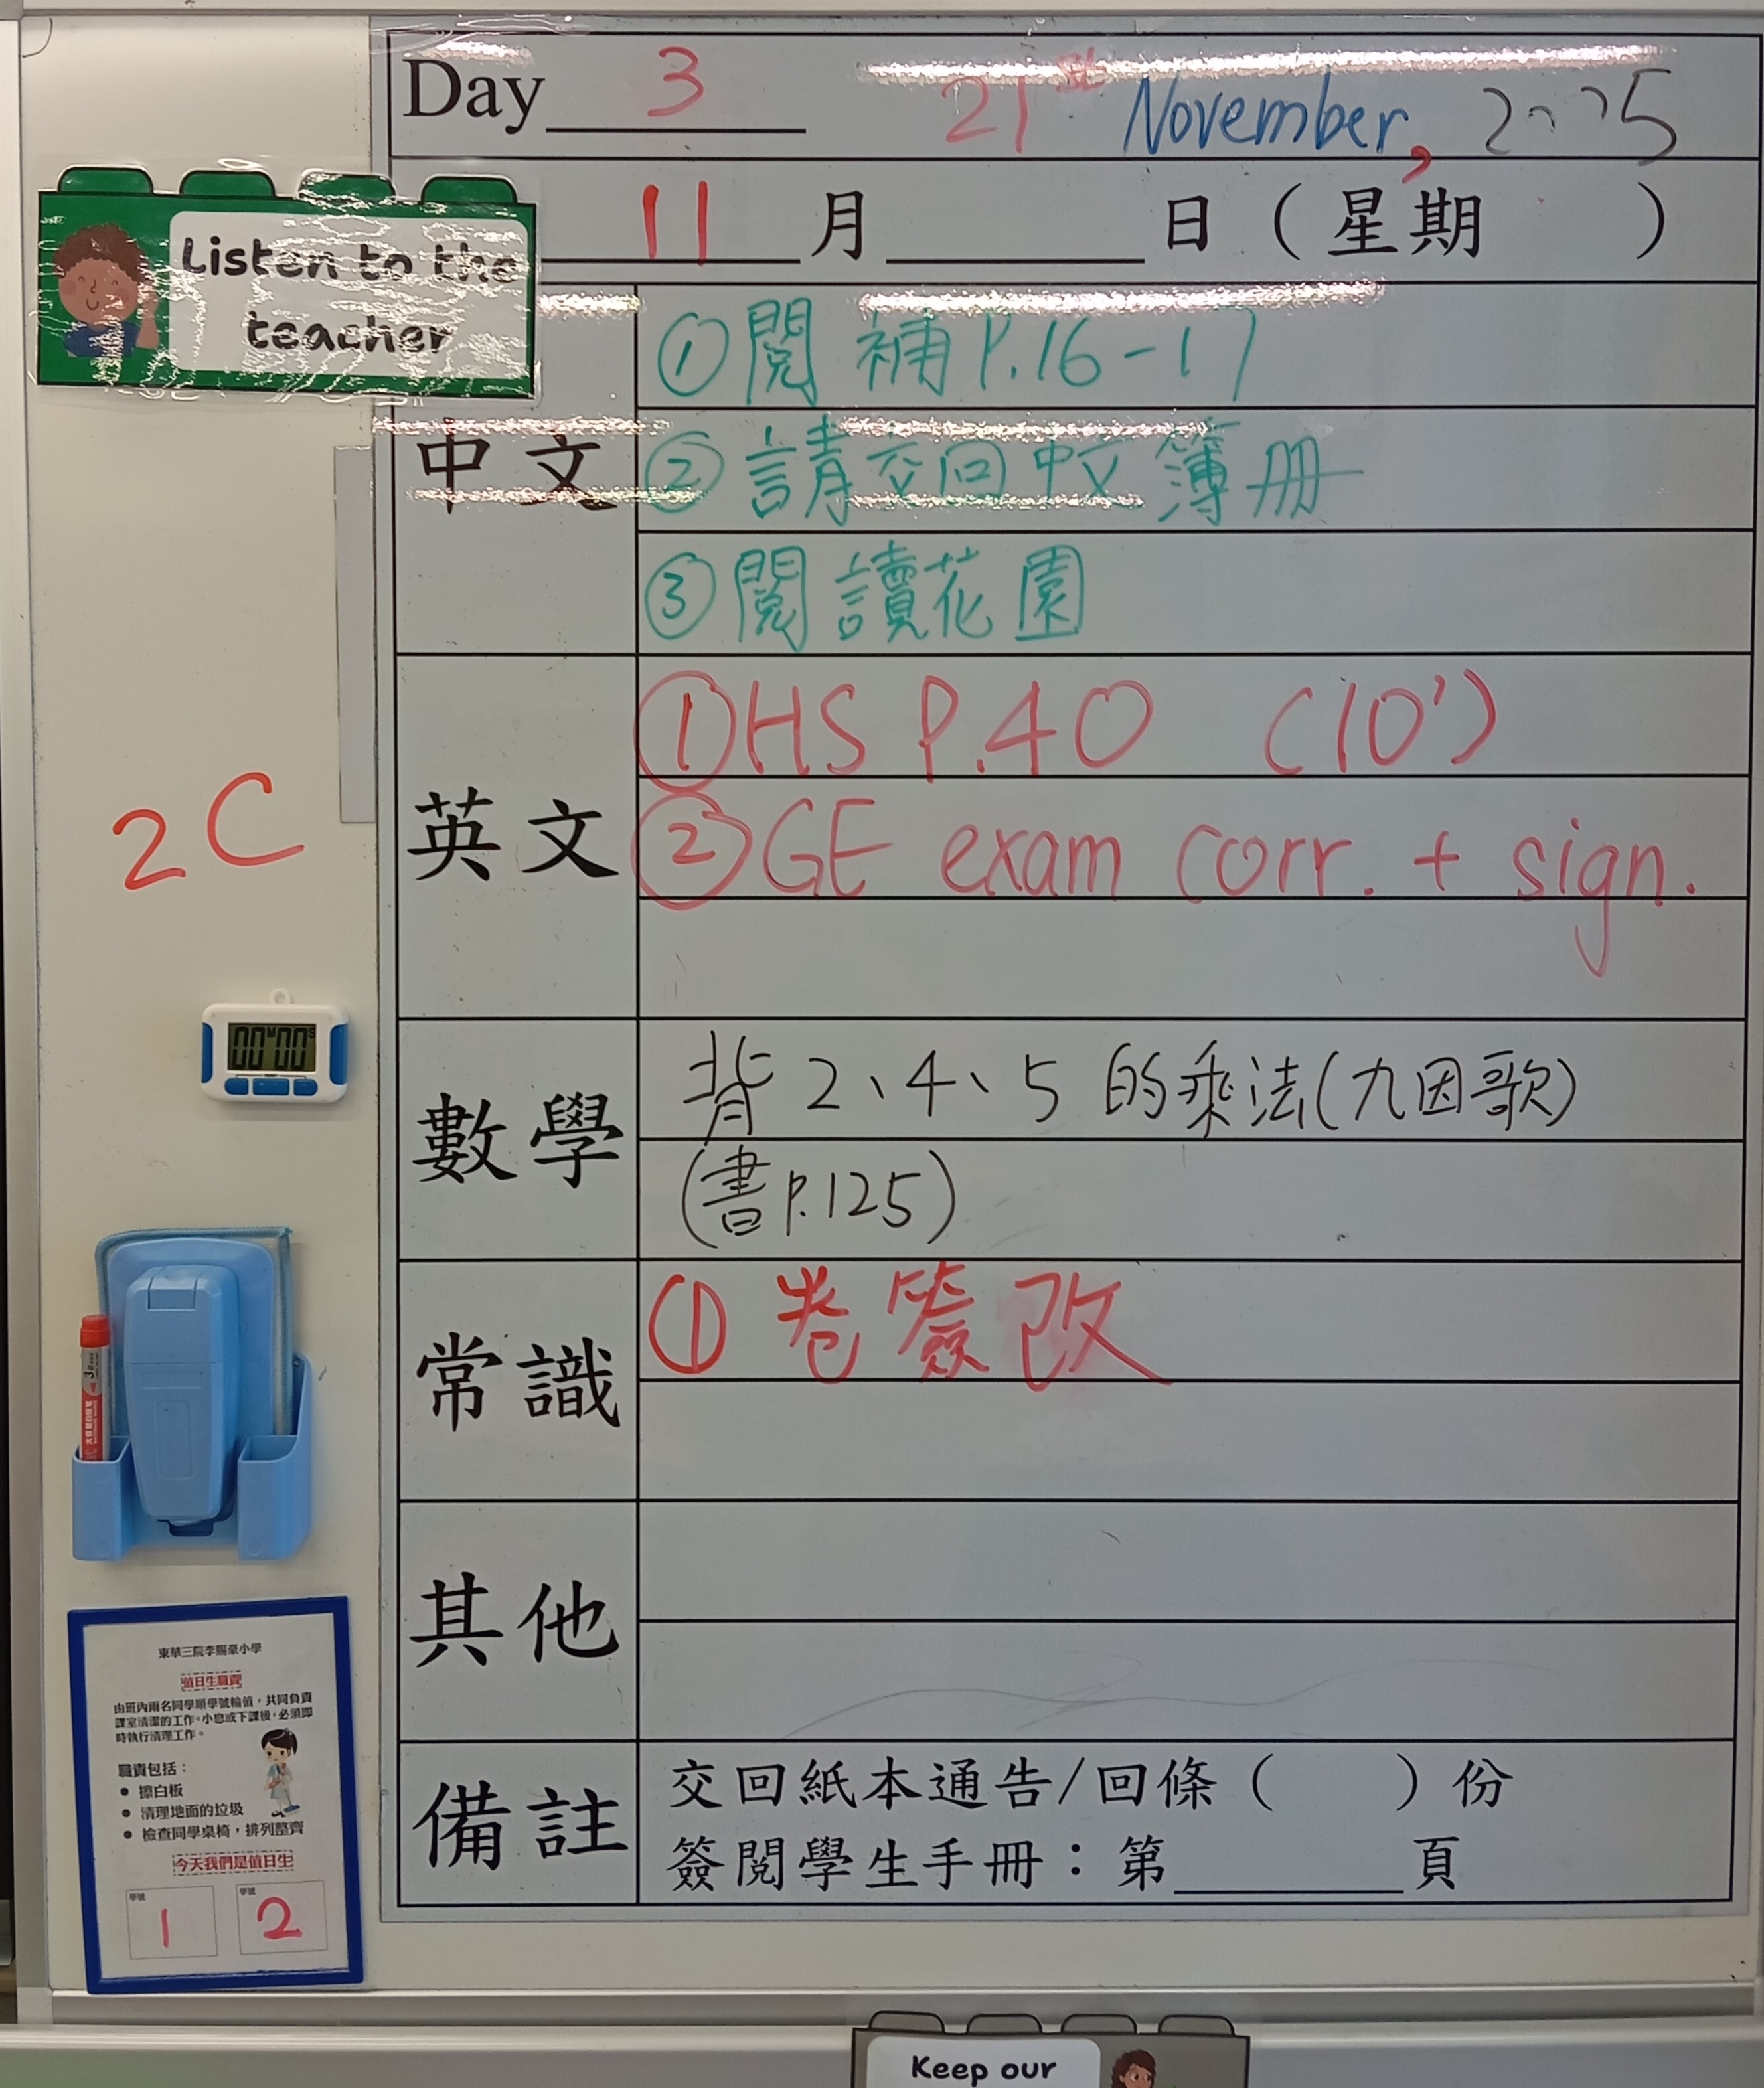 Day 3 21st November, 2025
11 月 日 ( 星期 )
Listen to the
teacher
中文
①閱補P.16-17
②請交回中文簿冊
③閱讀花園
英文
①HS P.40 (10')
②GE exam corr. + sign.
2C
數學
背2、4、5的乘法(九因歌)
(書P.125)
常識
① 卷簽改
其他
備註
交回紙本通告/回條( )份
簽閱學生手冊：第 頁
00M00S
東華三院李賜豪小學
值日生職責
由班內兩名同學順學號輪值，共同負責
課室清潔的工作。小息或下課後，必須即
時執行清理工作。
職責包括：
• 擦白板
• 清理地面的垃圾
• 檢查同學桌椅，排列整齊
今天我們是值日生
學號 學號
1 2
Keep our